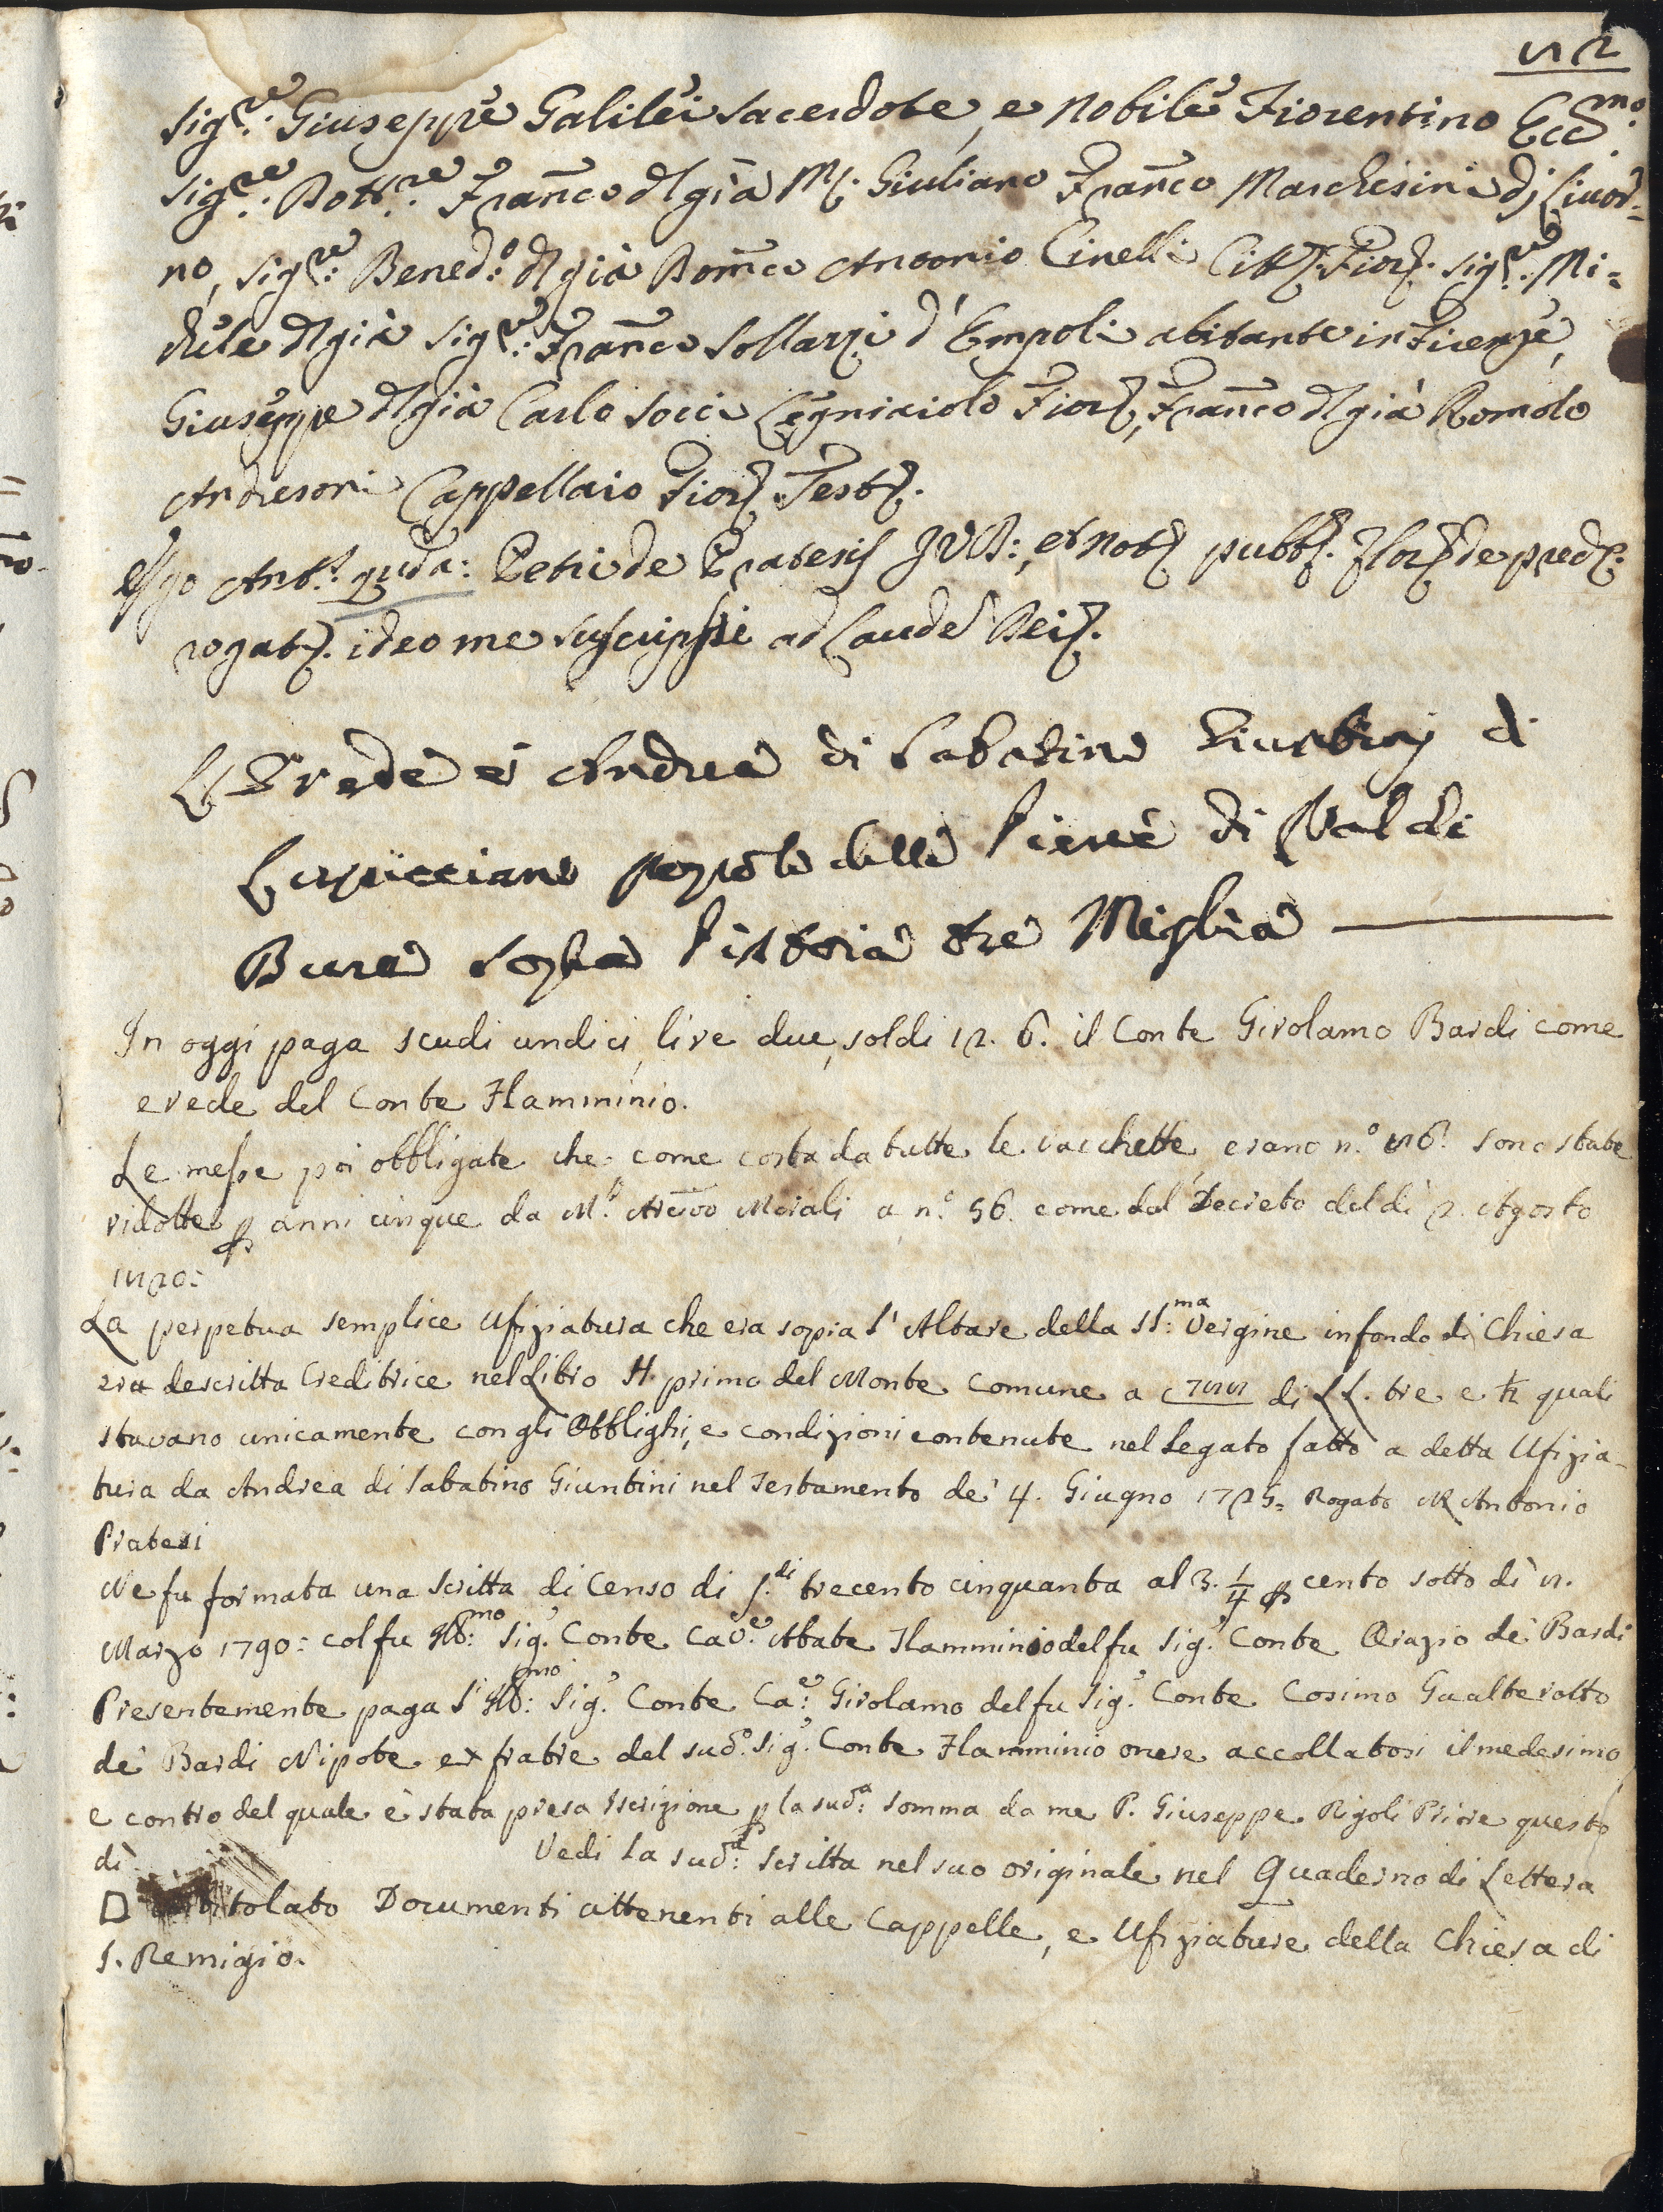 82
Sig.re Giuseppe Galilei Sacerdote, e Nobile Fiorentino Ecc.mo
Sig.re Dott.re Fran.co d'già M. Giuliano Fran.co Marchesini di Livor=
no, Sig.re Bened.o d'già Dom.co Antonio Cinelli Citt. Fior. Sig.re Mi=
chele d'già Sig.re Fran.co Sollazzi d'Empoli abitante in Firenze,
Giuseppe d'già Carlo Socci Legniaiolo Fior., Fran.co d'già Romolo
Andresoni Cappellaio Fior. Test.
Ego Ant.s qda: Petri de Pratesis JVD:, et Not. pubb. Flor. de pred.
rogat. ideo me suscripsi ad Laude Dei.
L'Erede è Andrea di Sabatino Giuntinj di
Lupicciano popolo della Pieve di Valdi
Bura sopra Pistoia tre Miglia
In oggi paga scudi undici, lire due, soldi 12. 6. il Conte Girolamo Bardi come
erede del Conte Flamminio.
Le messe poi obbligate che come costa da tutte le vacchette, erano n.o 86. sono state
ridotte p anni cinque da M.r Arcivo Morali a n.o 56. come dal Decreto del dì 2. Agosto
1820:
La perpetua semplice Ufiziatura che era sopra l'Altare della SS:ma Vergine in fondo di Chiesa
era descritta Creditrice nel Libro H. primo del Monte Comune a c 788 di LL. tre e ½ quali
stavano unicamente con gli Obblighi, e condizioni contenute nel Legato fatto a detta Ufizia-
tura da Andrea di Sabatino Giuntini nel Testamento de' 4. Giugno 1725= Rogato M Antonio
Pratesi
Ne fu formata una Scritta di Censo di s.di trecento cinquanta al 3. 1/4 p cento sotto dì 8.
Marzo 1790: col fu Ill:mo Sig.r Conte Cav.e Abate Flamminio del fu Sig.r Conte Orazio de' Bardi
Presentemente paga l'Ill:mo Sig.r Conte Ca.e: Girolamo del fu Sig.r Conte Cosimo Gualterotto
de' Bardi Nipote ex fratre del sud.o Sig.r Conte Flamminio onere accollatosi il medesimo
e contro del quale è stata presa Iscrizione p la sud:a somma da me P. Giuseppe Rigoli Priore questo
dì Vedi la sud:a Scritta nel suo originale nel Quaderno di Lettera
D intitolato Documenti attenenti alle Cappelle, e Ufiziature della Chiesa di
S. Remigio.